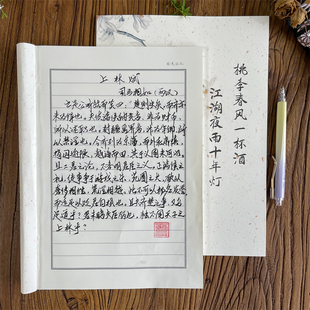 上林赋
司马相如(两汉)
亡是公听然而笑曰:楚则失矣,而齐亦
未为得也。夫使诸侯纳贡者,非为财币,
所以述职也。封疆画界者,非为守御,所
以禁淫也。今齐列为东藩,而外私肃慎,
捐国逾限,越海而田,其于义固未可也。
且二君之论,不务明君臣之义,正诸侯之
礼,徒事争于游戏之乐,苑囿之大,欲以
奢侈相胜,荒淫相越,此不可以扬名发誉,
而适足以贬君自损也。且夫齐楚之事,又乌
足道乎!君未睹夫巨丽也,独不闻天子之
上林乎?
桃李春风一杯酒
江湖夜雨十年灯